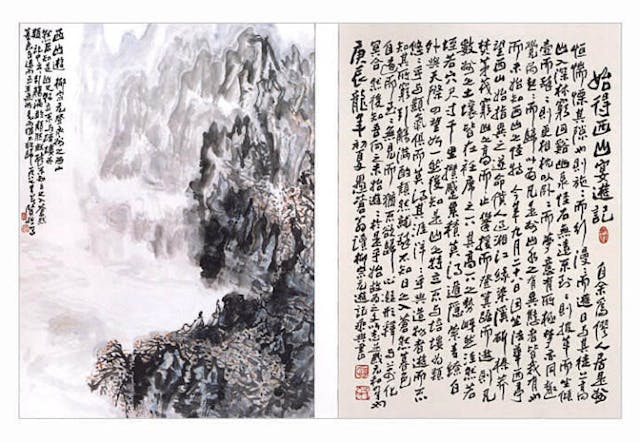 始得西山宴遊記
自余為僇人居是州
恒惴慄其隙也則施施而行漫漫而遊日與其徒上高
山入深林窮迴谿幽泉怪石無遠不到到則披草而坐傾
壺而醉醉則更相枕以臥臥而夢意有所極夢亦同趣
覺而起起而歸以為凡是州之山水有異態者皆我有也
而未始知西山之怪特今年九月二十日因坐法華西亭
望西山始指異之遂命僕人過湘江緣染溪斫榛莽
焚茅茷窮山之高而止攀援而登箕踞而遨則凡
數州之土壤皆在衽席之下其高下之勢岈然洼然若
垤若穴尺寸千里攢蹙累積莫得遯隱縈青繚白
外與天際四望如一然後知是山之特立不與培塿為類
悠悠乎與顥氣俱而莫得其涯洋洋乎與造物者遊而不
知其所窮引觴滿酌頹然就醉不知日之入蒼然暮色
自遠而至至無所見而猶不欲歸心凝形釋與萬化
冥合然後知吾向之未始遊遊於是乎始故為之文以志是歲元和四年也
庚辰龍年初夏 讀柳宗元遊記乘興書
西山遊 柳宗元登永州之西山
然後知是山之特立不與培塿為
類 引觴滿酌頹然就醉不知日之入蒼然
暮色